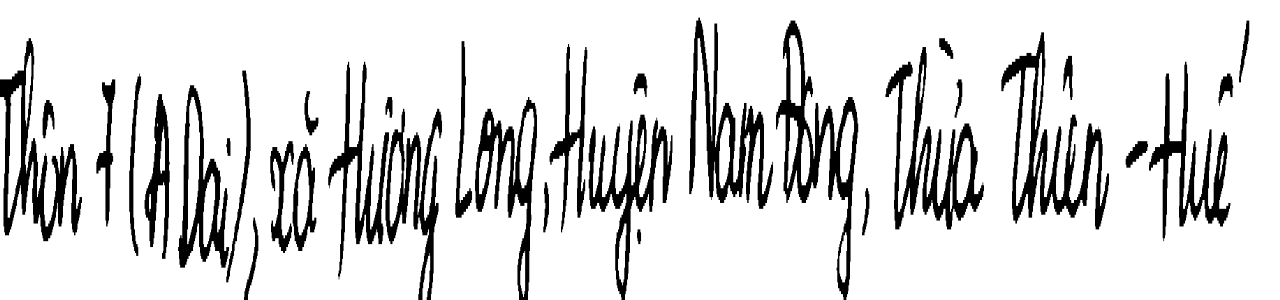 Thôn 7 (A Dai), xã Hương Long, Huyện Nam Đông, Thừa Thiên - Huế